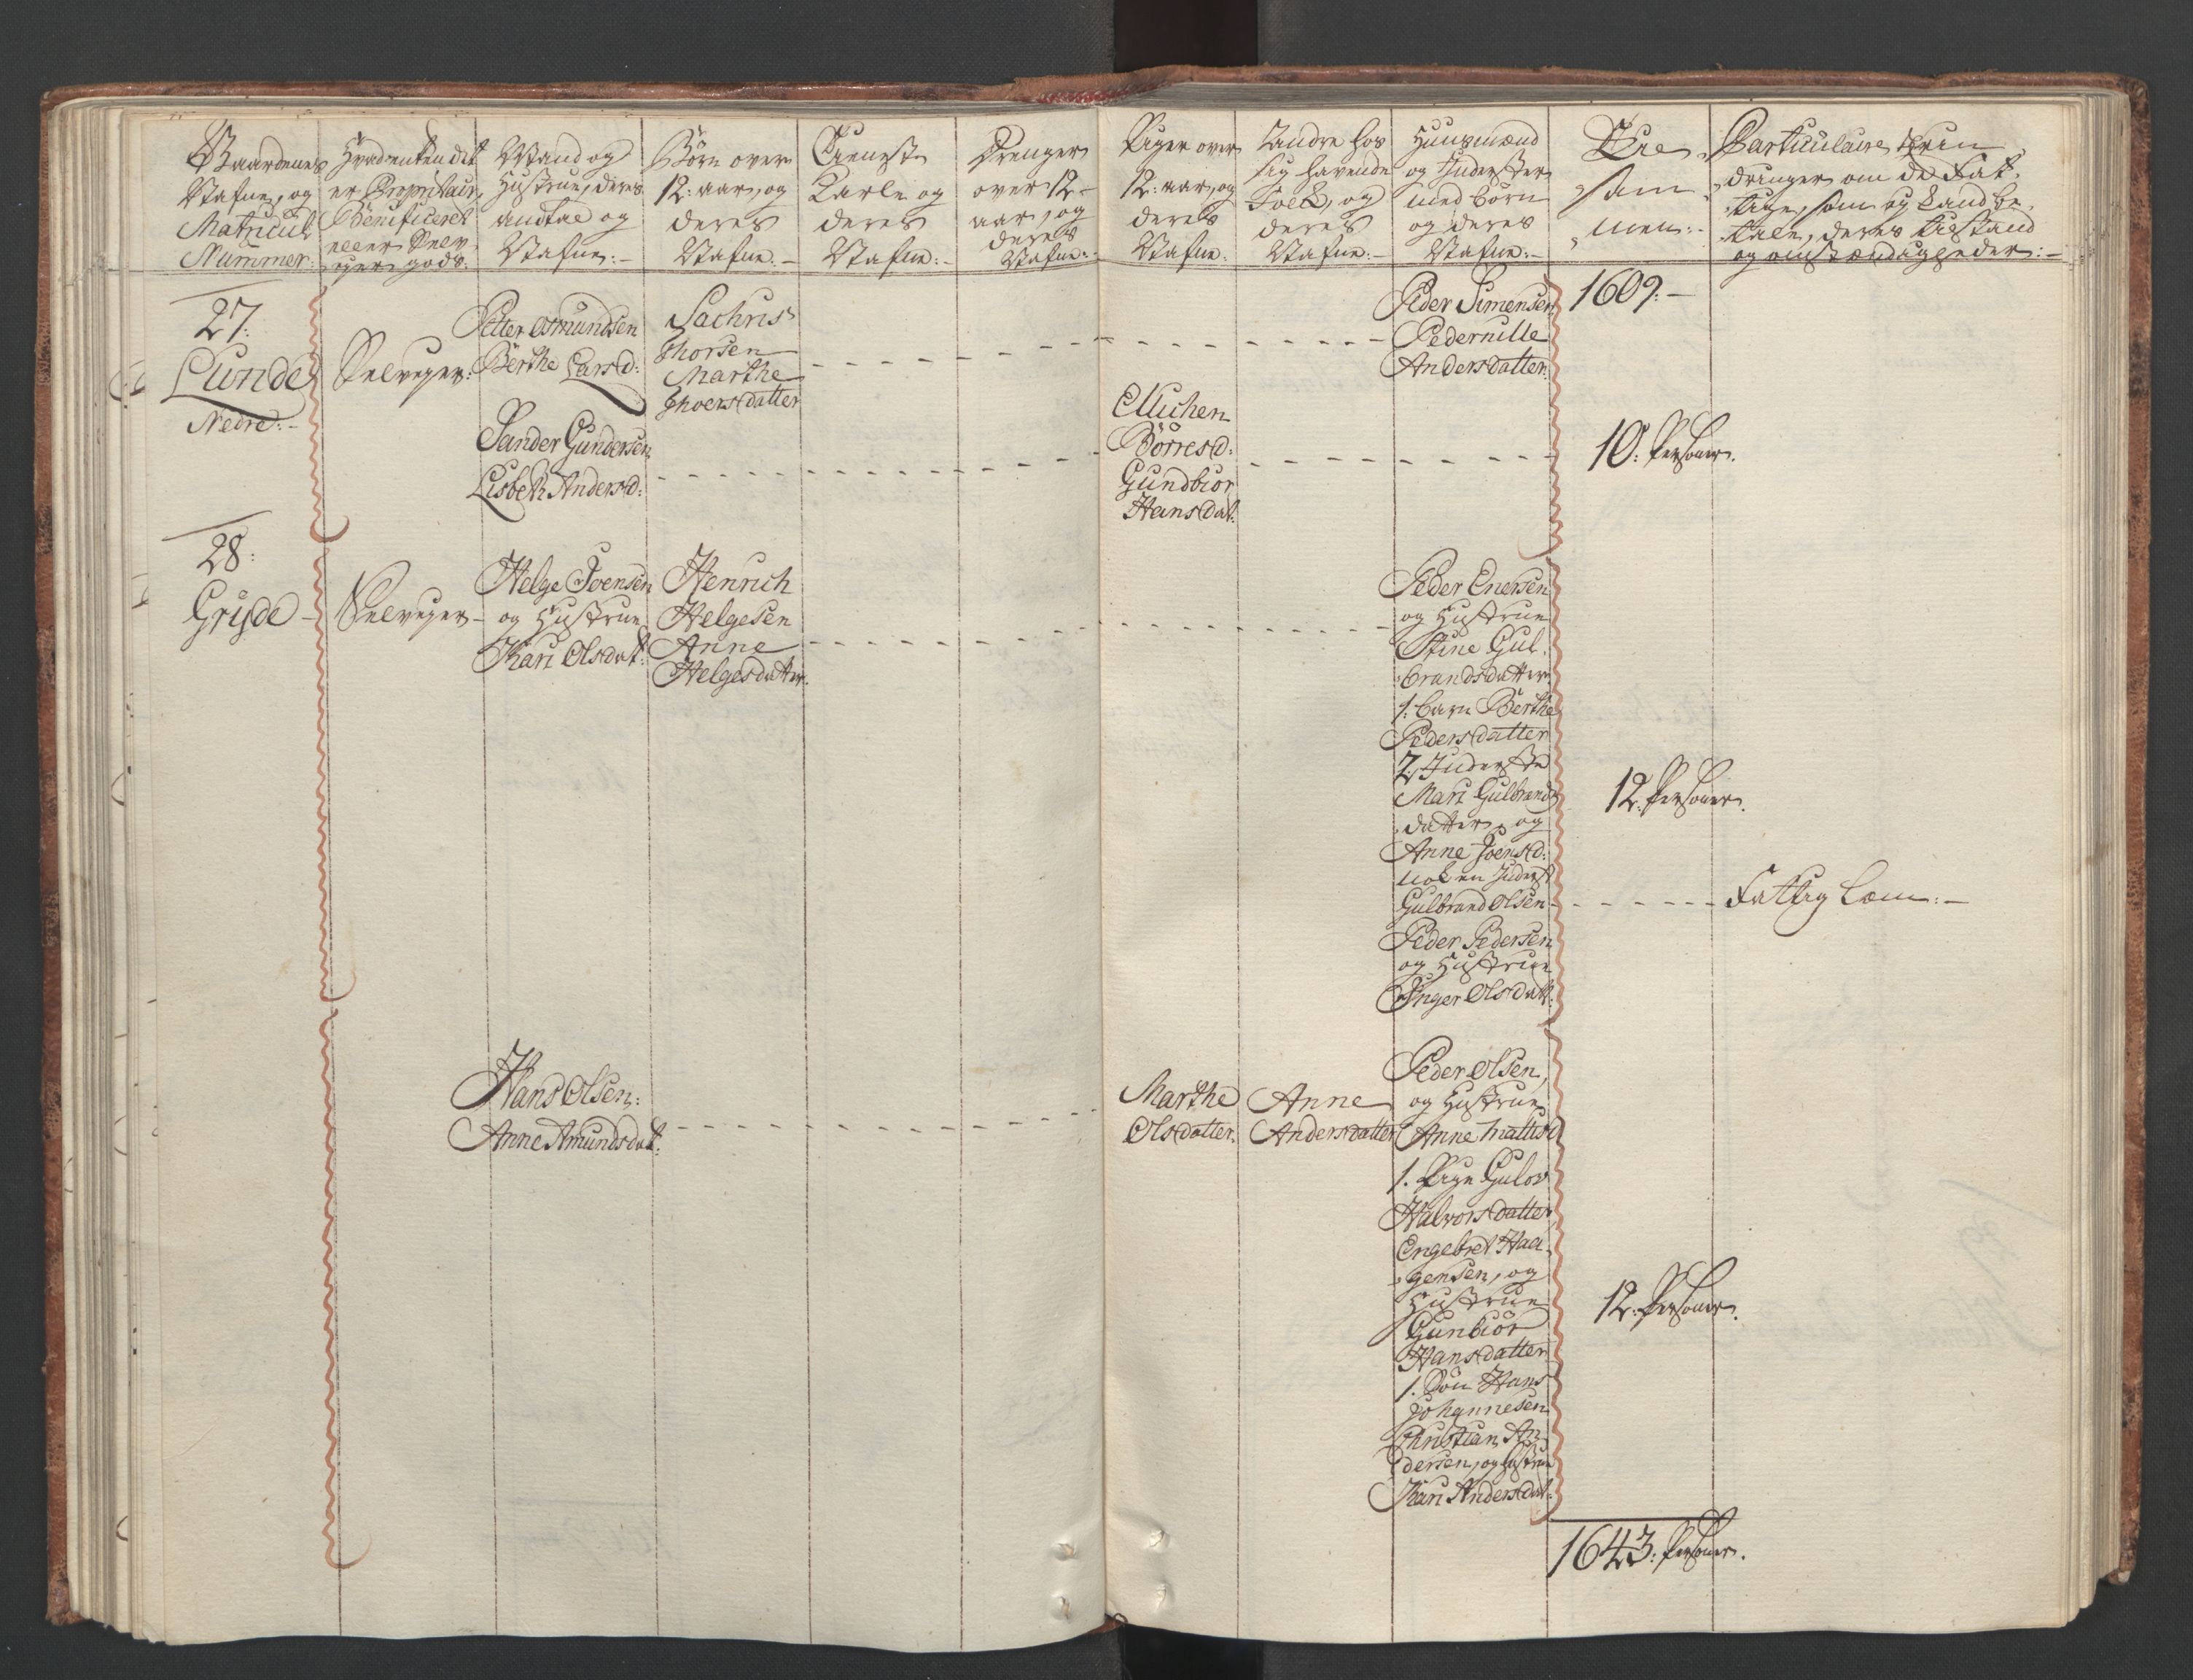 Gaardenes
Nafne, og
Matricul
Nummer:
Hvad enten det
er Proprietair,
Beneficeret
eller Selv-
eyer gods:
Mand og
Hustrue, deres
andtal og
Nafne:-
Børn over
12: aar, og
deres
Nafne:-
Tieneste
Karle og
deres
Nafne:-
Drenger
over 12-
aar, og
deres
Nafne:-
Piger over
12: aar, og
deres
Nafne:
Andre hos
sig havende
Folck, og
deres
Nafne:-
Huusmænd
og Inderster
med børn
og deres
Nafne:-
Til-
sam-
men:-
Particulaire Erin-
dringer om de Fat-
tige, som ey kand be-
tale, deres tilstand
og omstændigheder:-
27:
Lunde
Nedre:-
Selveyer:
Petter Osmundsen
Berthe Larsd:
Sachris
Thorsen
Marthe
Thoersdatter
Peder Simensen
Pedernille
Andersdatter:
1609:-
Sander Gundersen
Lisbeth Andersd:
Ellichen
Börresd:
Gundbior
Hansdat:
10: Personer.
28:
Grijde-
Selveyer-
Helge Joensen
og Hustrue
Kari Olsdat:
Henrich
Helgesen
Anne
Helgesdatter.
Peder Enersen
og Hustrue
Stine Gul-
brandsdatter
1: barn Berthe
Pedersdatter
2: Inderste
Mari Gulbrands
datter, og
Anne Joensd:
nok en Inderst
Gulbrand Olsen-
Peder Pedersen
og Hustrue
Inger Olsdatt:
12: Personer.
Fattig Lem:-
Hans Olsen:
Anne Amundsdat:
Marthe
Olsdatter:
Anne
Andersdatter
Peder Olsen,
og Hustrue
Anne Mattisd
1. Pige Gulov
Halvorsdatter
Engebret Haa-
gensen, og
Hustrue
Gunbior
Hansdatter
1. Søn Hans
Johannesen
Christian An-
dersen, og Hustrue
Kari Andersdat:
12: Personer.
1643: Personer.